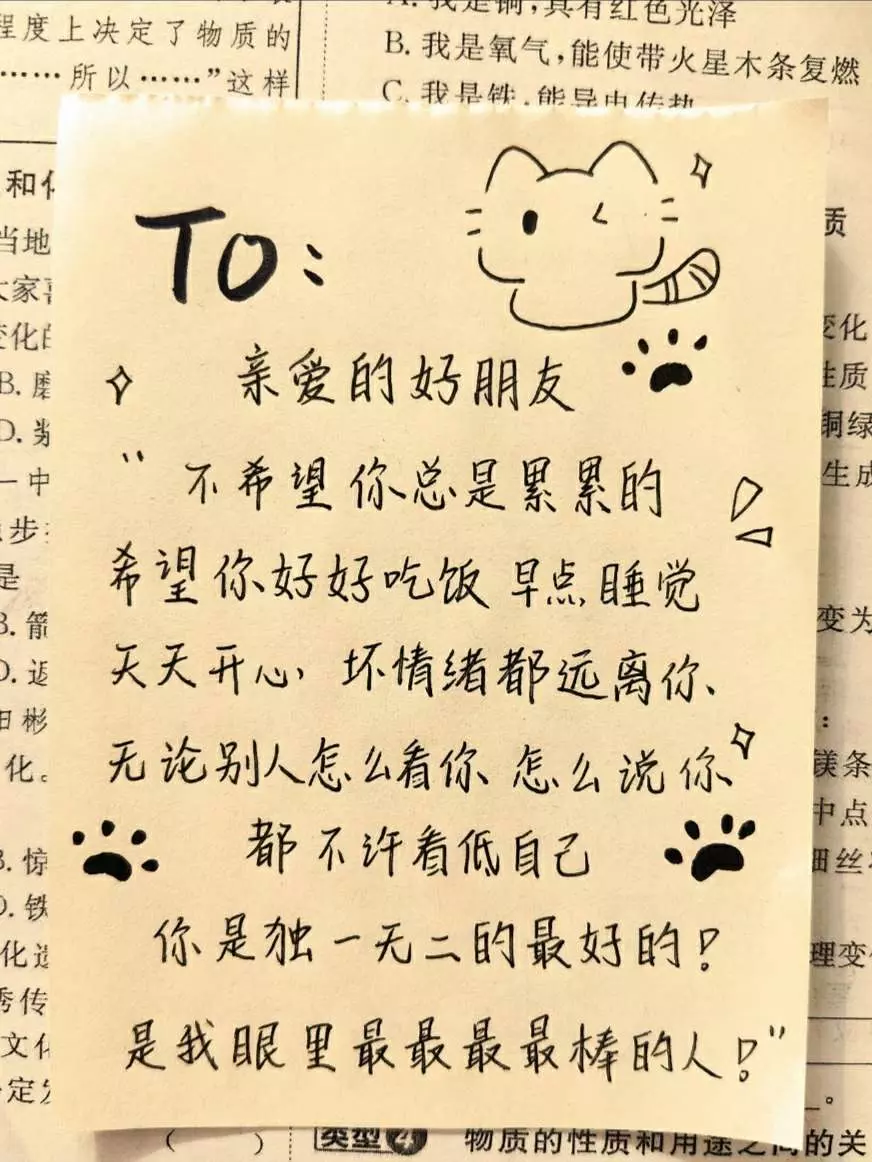 程度上决定了物质的
……所以……”这样
A. 我是铜，具有红色光泽
B. 我是氧气，能使带火星木条复燃
C. 我是铁，能导电传热
和
当地
大家
变化的
B.
D.
一中
步
是
B. 箭
D. 返
田彬
化。
B. 惊
D. 铁
化
秀传
文化
定
TO：
亲爱的好朋友
“不希望你总是累累的
希望你好好吃饭 早点睡觉
天天开心，坏情绪都远离你、
无论别人怎么看你 怎么说你
都不许看低自己
你是独一无二的最好的！
是我眼里最最最最棒的人！”
质
变化
性质
铜绿
生成
变为
：
镁条
中点
细丝
理变化
。
（ ）
类型4 物质的性质和用途之间的关